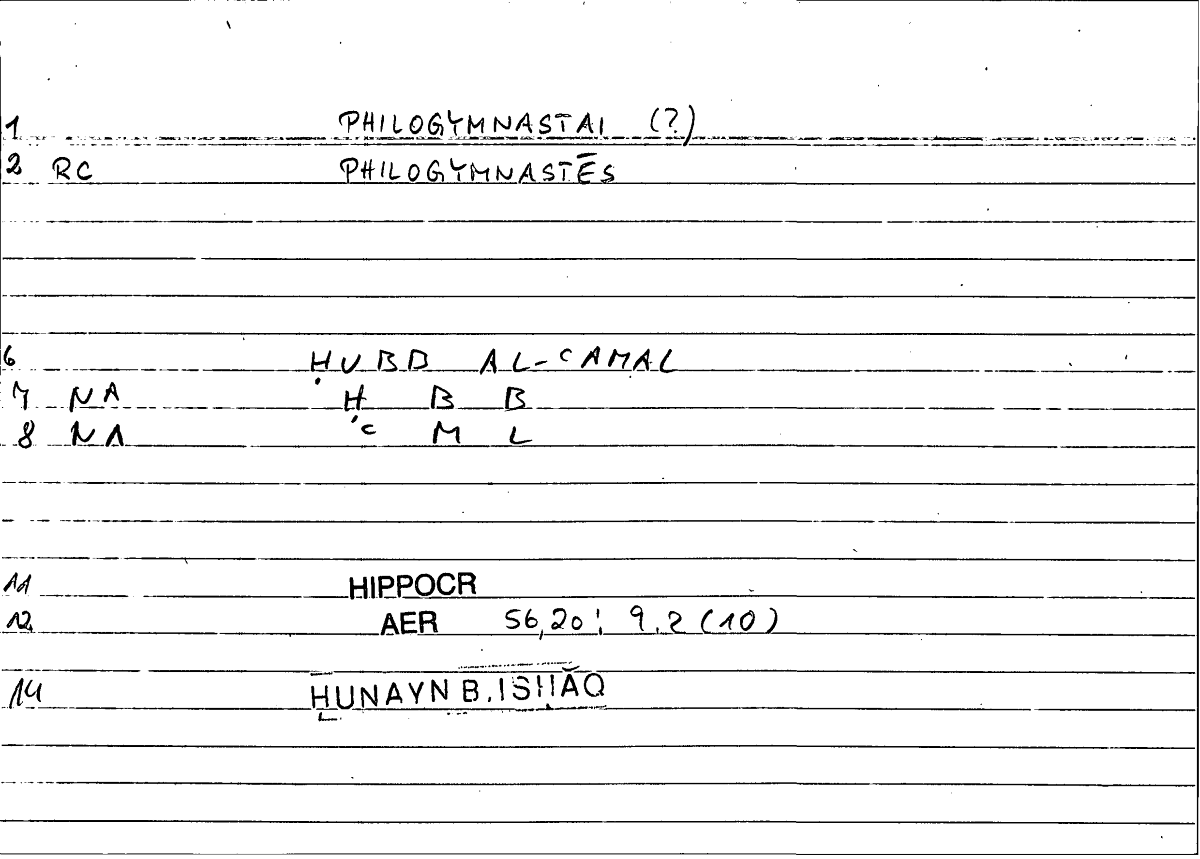 1 PHILOGYMNASTAI (?)
2 RC PHILOGYMNASTĒS
6 ḤUBB AL-ʿAMAL
7 NA Ḥ B B
8 NA ʿ M L
11 HIPPOCR
12 AER 56,20: 9.2 (10)
14 ḤUNAYN B. ISḤĀQ